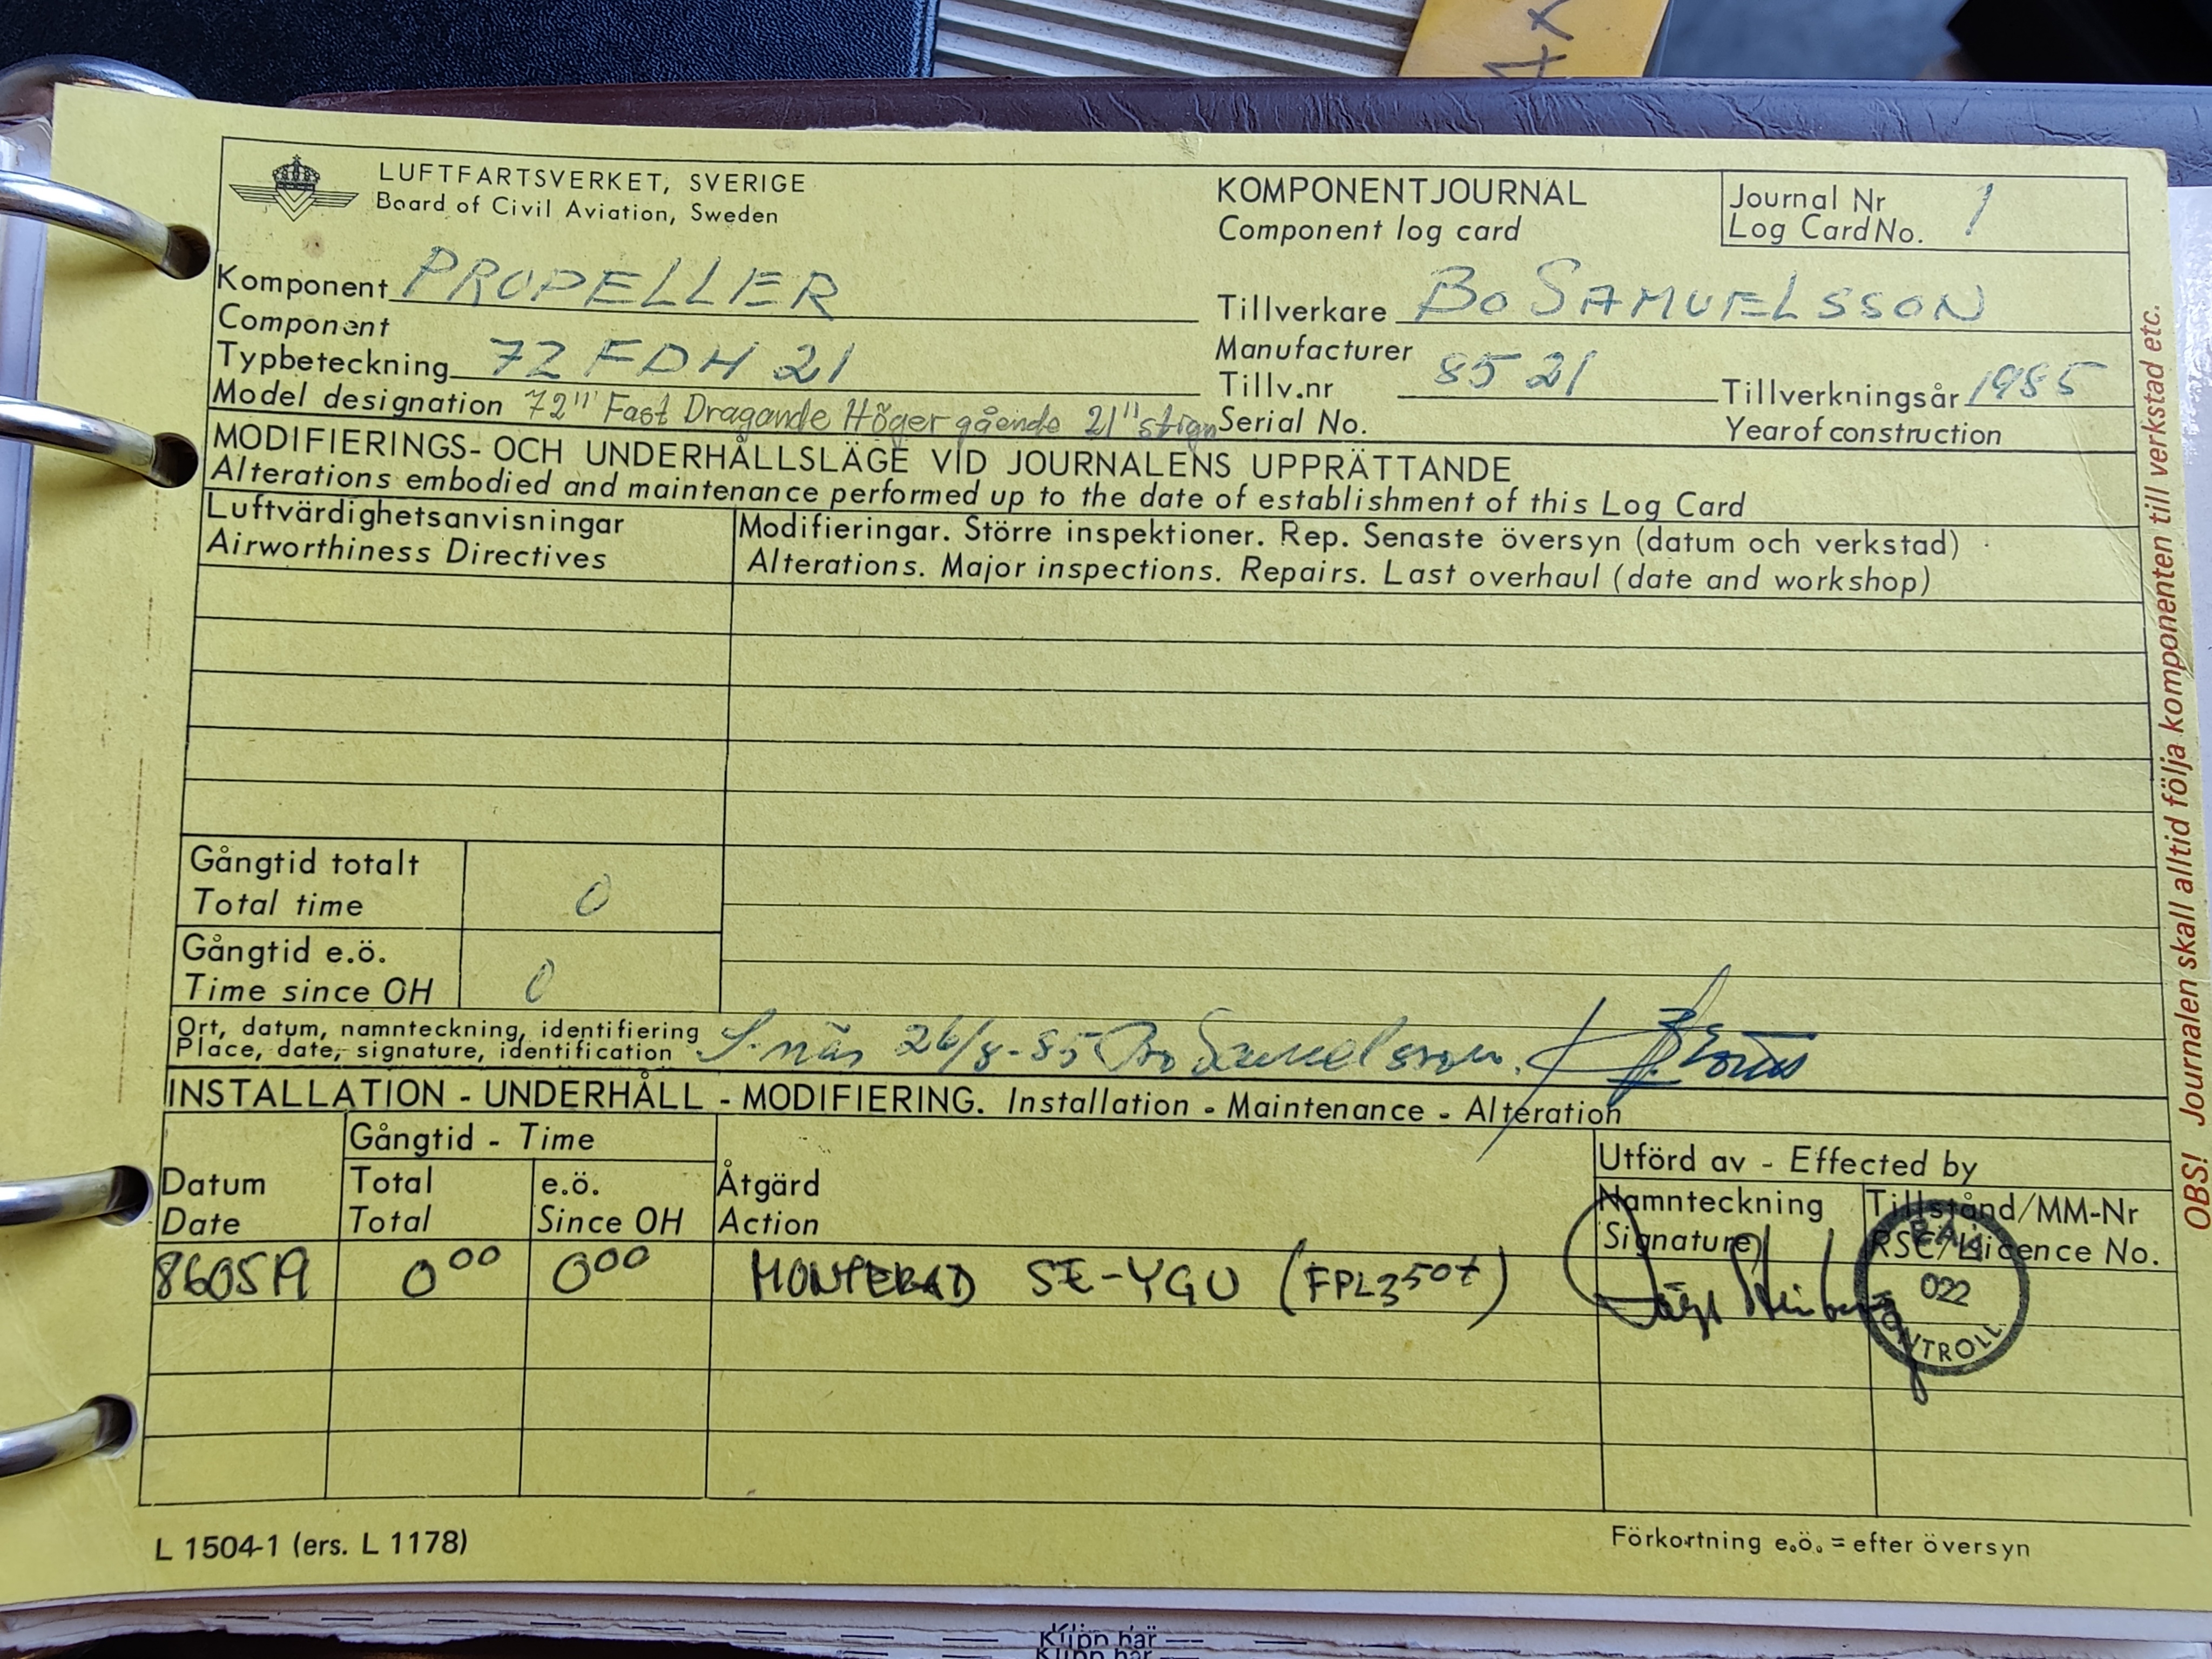 LUFTFARTSVERKET, SVERIGE
Board of Civil Aviation, Sweden
KOMPONENTJOURNAL
Component log card
Journal Nr
Log Card No. 1
Komponent PROPELLER
Component
Tillverkare BO SAMUELSSON
Manufacturer
Typbeteckning 72 FDH 21
Model designation 72" Fast Dragande Höger gående 21" stign
Tillv.nr 8521
Serial No.
Tillverkningsår 1985
Year of construction
MODIFIERINGS- OCH UNDERHÅLLSLÄGE VID JOURNALENS UPPRÄTTANDE
Alterations embodied and maintenance performed up to the date of establishment of this Log Card
Luftvärdighetsanvisningar
Airworthiness Directives
Modifieringar. Större inspektioner. Rep. Senaste översyn (datum och verkstad)
Alterations. Major inspections. Repairs. Last overhaul (date and workshop)
Gångtid totalt
Total time 0
Gångtid e.ö.
Time since OH 0
Ort, datum, namnteckning, identifiering
Place, date, signature, identification
26/8-85 Bo Samuelsson.
INSTALLATION - UNDERHÅLL - MODIFIERING. Installation - Maintenance - Alteration
Gångtid - Time
Utförd av - Effected by
Datum
Date
Total
Total
e.ö.
Since OH
Åtgärd
Action
Namnteckning
Signature
Tillstånd/MM-Nr
RSC/Licence No.
860519 0⁰⁰ 0⁰⁰ MONTERAD SE-YGU (FPL3507)
022
KONTROLL
L 1504-1 (ers. L 1178)
Förkortning e.ö. = efter översyn
OBS! Journalen skall alltid följa komponenten till verkstad etc.
Klipp här
Klipp här